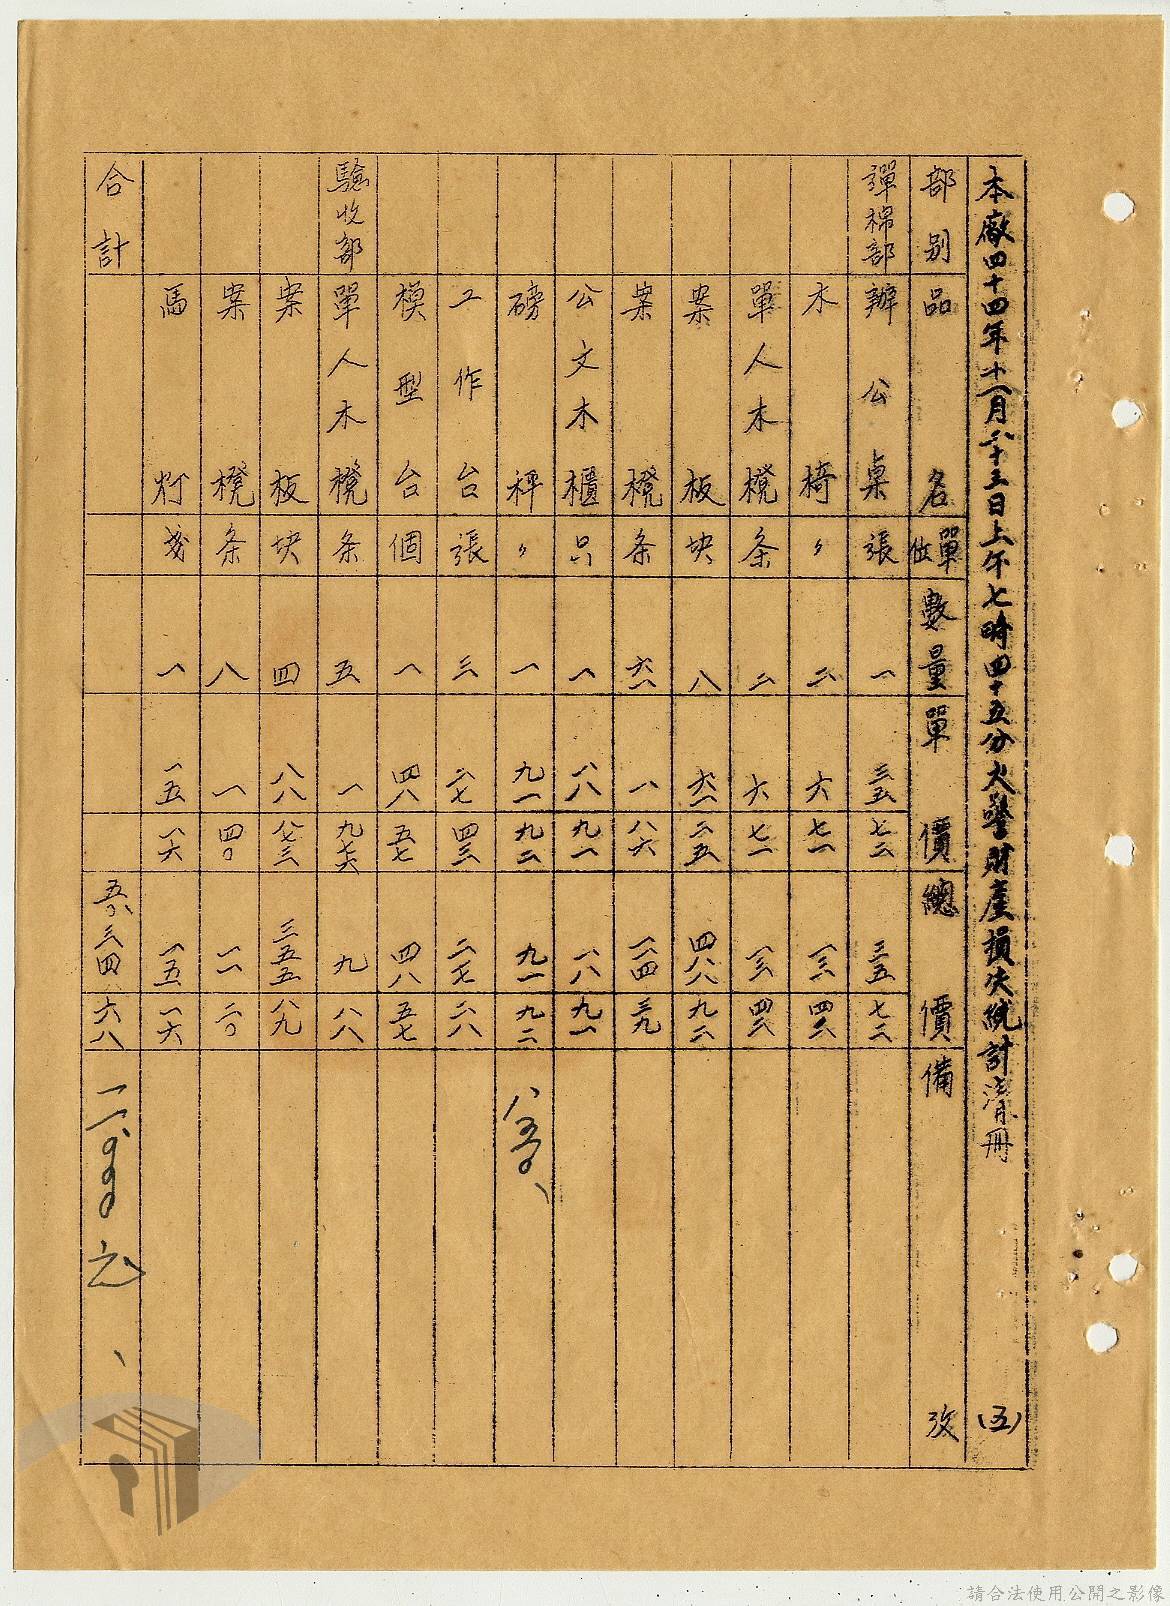 本廠四十四年十一月二十三日上午七時四十五分火警財產損失統計清冊 (五)
部別 品名 單位 數量 單價 總價 備攷
彈棉部 辦公桌 張 一 三五 七二 三五 七二
木椅 〃 二 六 七一 一三 四二
單人木櫈 条 二 六 七一 一三 四二
案板 块 八 六一 一一五 四八八 九二
案櫈 条 六一 一 八六 一一四 三九
公文木櫃 只 一 一八 九一 一八 九一
磅秤 〃 一 九一 九二 九一 九二
工作台 張 三 四三 二八
模型台 個 一 四八 五七 四八 五七
驗收部 單人木櫈 条 五 一 九七六 九 八八
案板 块 四 八八 八七三 三五五 八九
案櫈 条 八 一 四〇 一一 二〇
馬灯 盞 一 一五 一六 一五 一六
合計 六八
請合法使用公開之影像